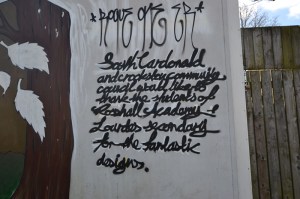 South Cardonald
and crookston community
council would like to
thank the students of
Rosshall Academy &
Lourdes secondary
for the fantastic
designs.